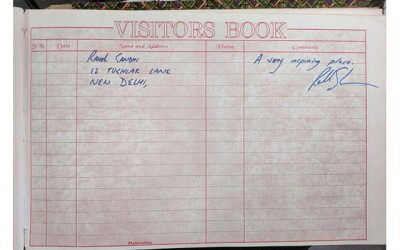 VISITORS BOOK
S.No. Date Name and Address Phone Comments
Rahul Gandhi A very inspiring place.
12 Tughlak Lane
New Delhi,